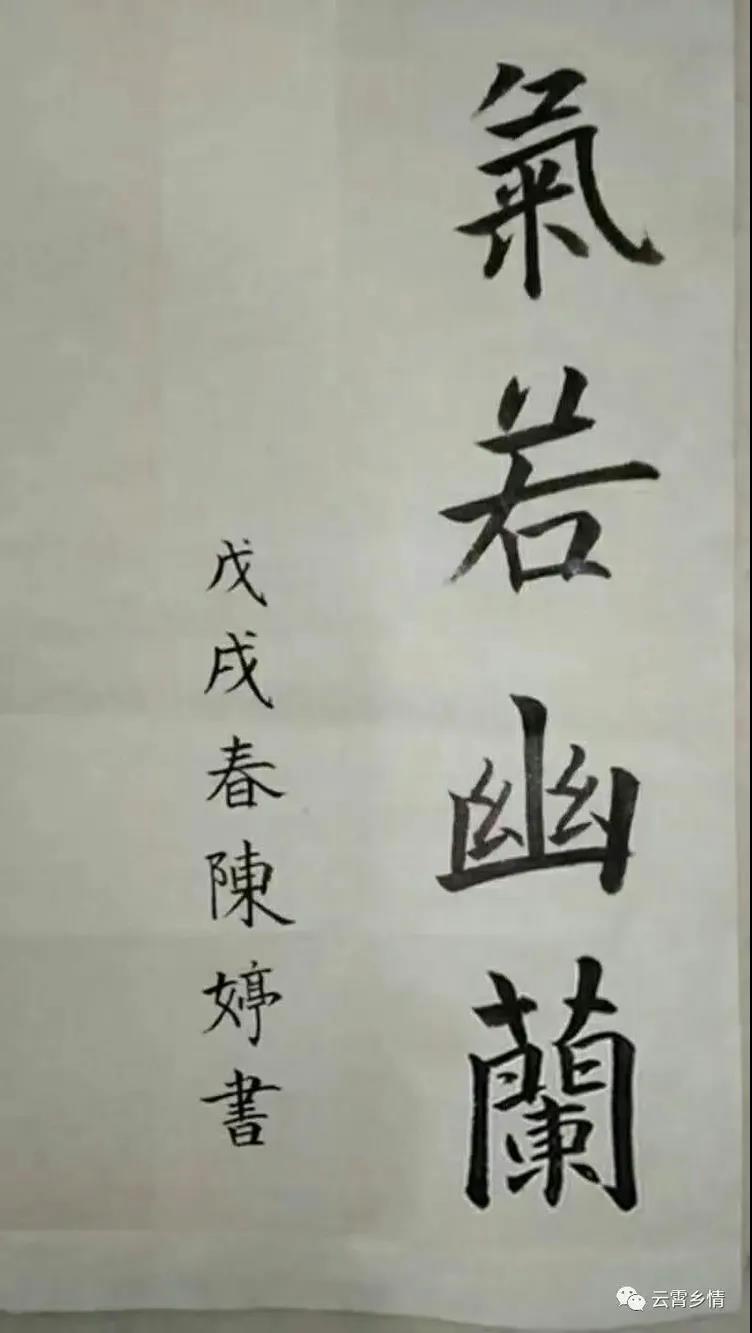 氣若幽蘭
戊戌春陳婷書
云霄乡情